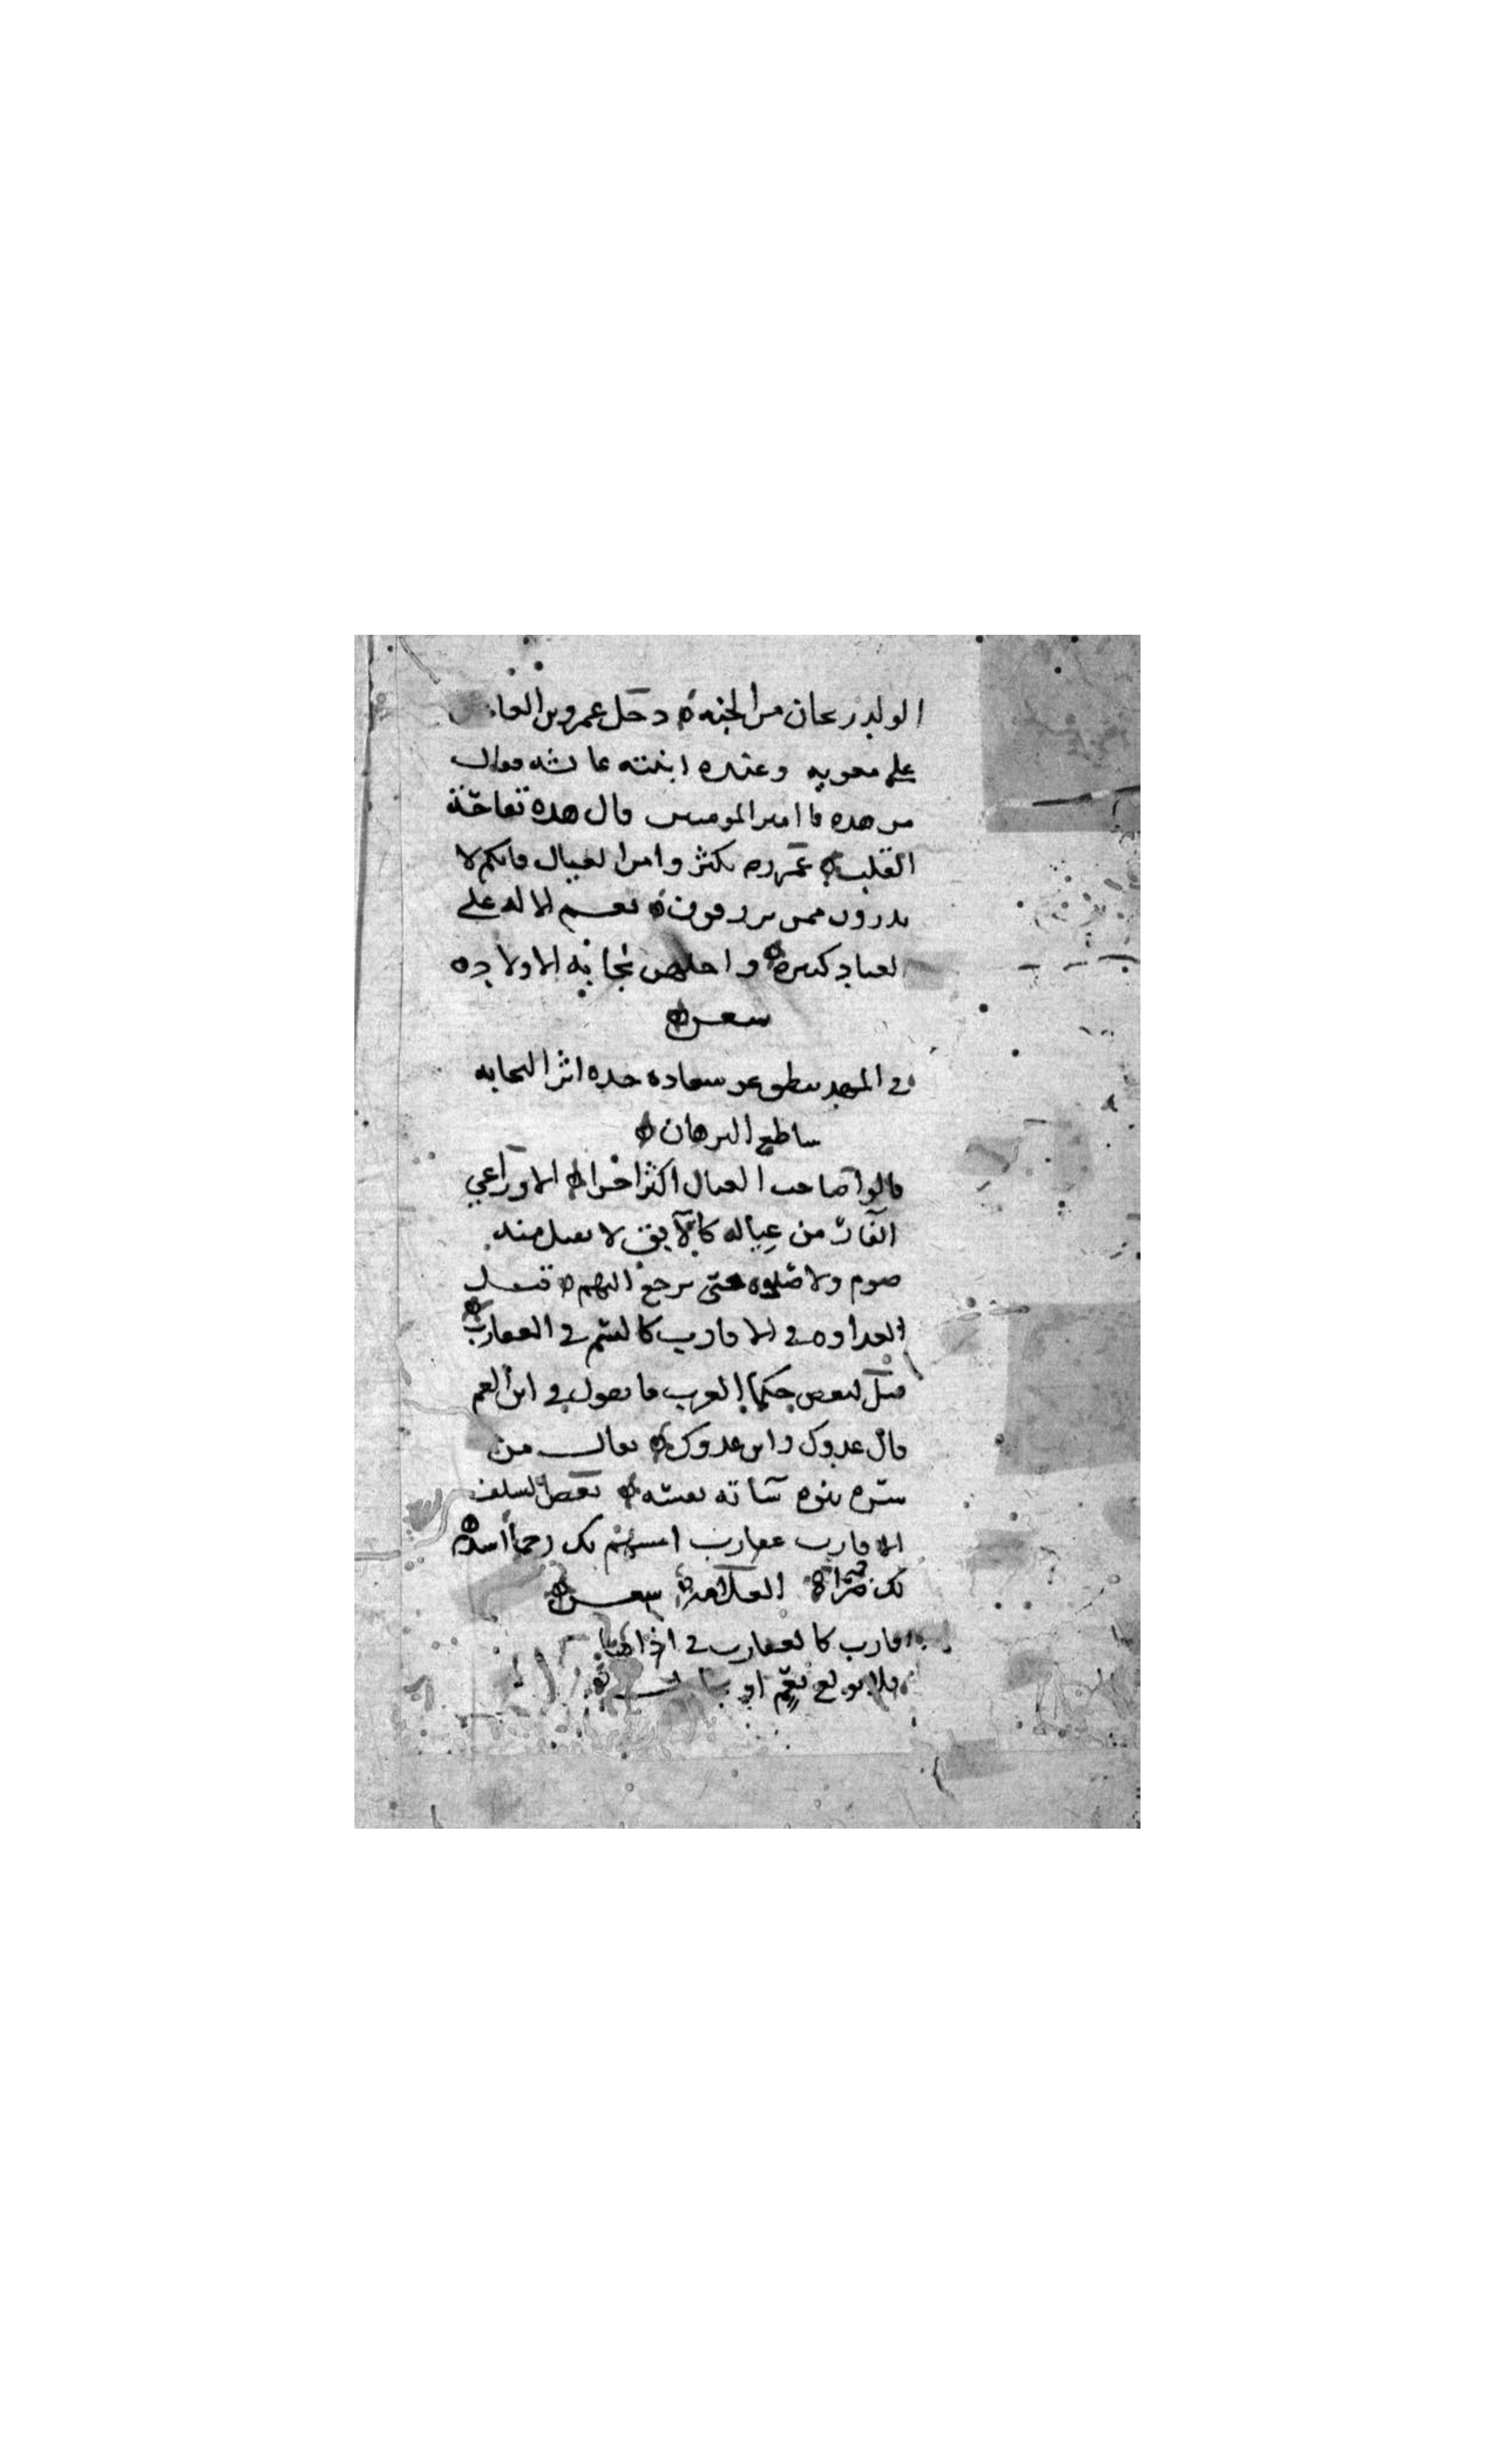 الولد ريحان من الجنة دخل عمرو بن العاص
على معوية وعنده ابنته عائشة فقال
من هذه يا امير المومنين قال هذه تفاحة
القلب عمر رضه تكثروا من العيال فانكم لا
تدرون ممن ترزقون نعم الاله على
العباد كثيرة واجلهن نجابة الاولاده
شعر
في المهد ينطق عن سعادة جده اثر النجابة
ساطع البرهان
قالوا صاحب العيال اكثر اجرا الاوزاعي
الفار من عياله كالآبق لا يقبل منه
صوم ولا صلوة حتى يرجع اليهم قيل
العداوة في الاقارب كالسم في العقارب
قيل لبعض حكما العرب ما تقول في ابن العم
قال عدوك وابن عدوك يقال من
سره بنوه سآته نفسه بعض السلف
الاقارب عقارب امسهم بك رحما اشدهم
لك ضرا العلامة شعر
اقارب كالعقارب في اذاها
فلا تولع بعم او بخال